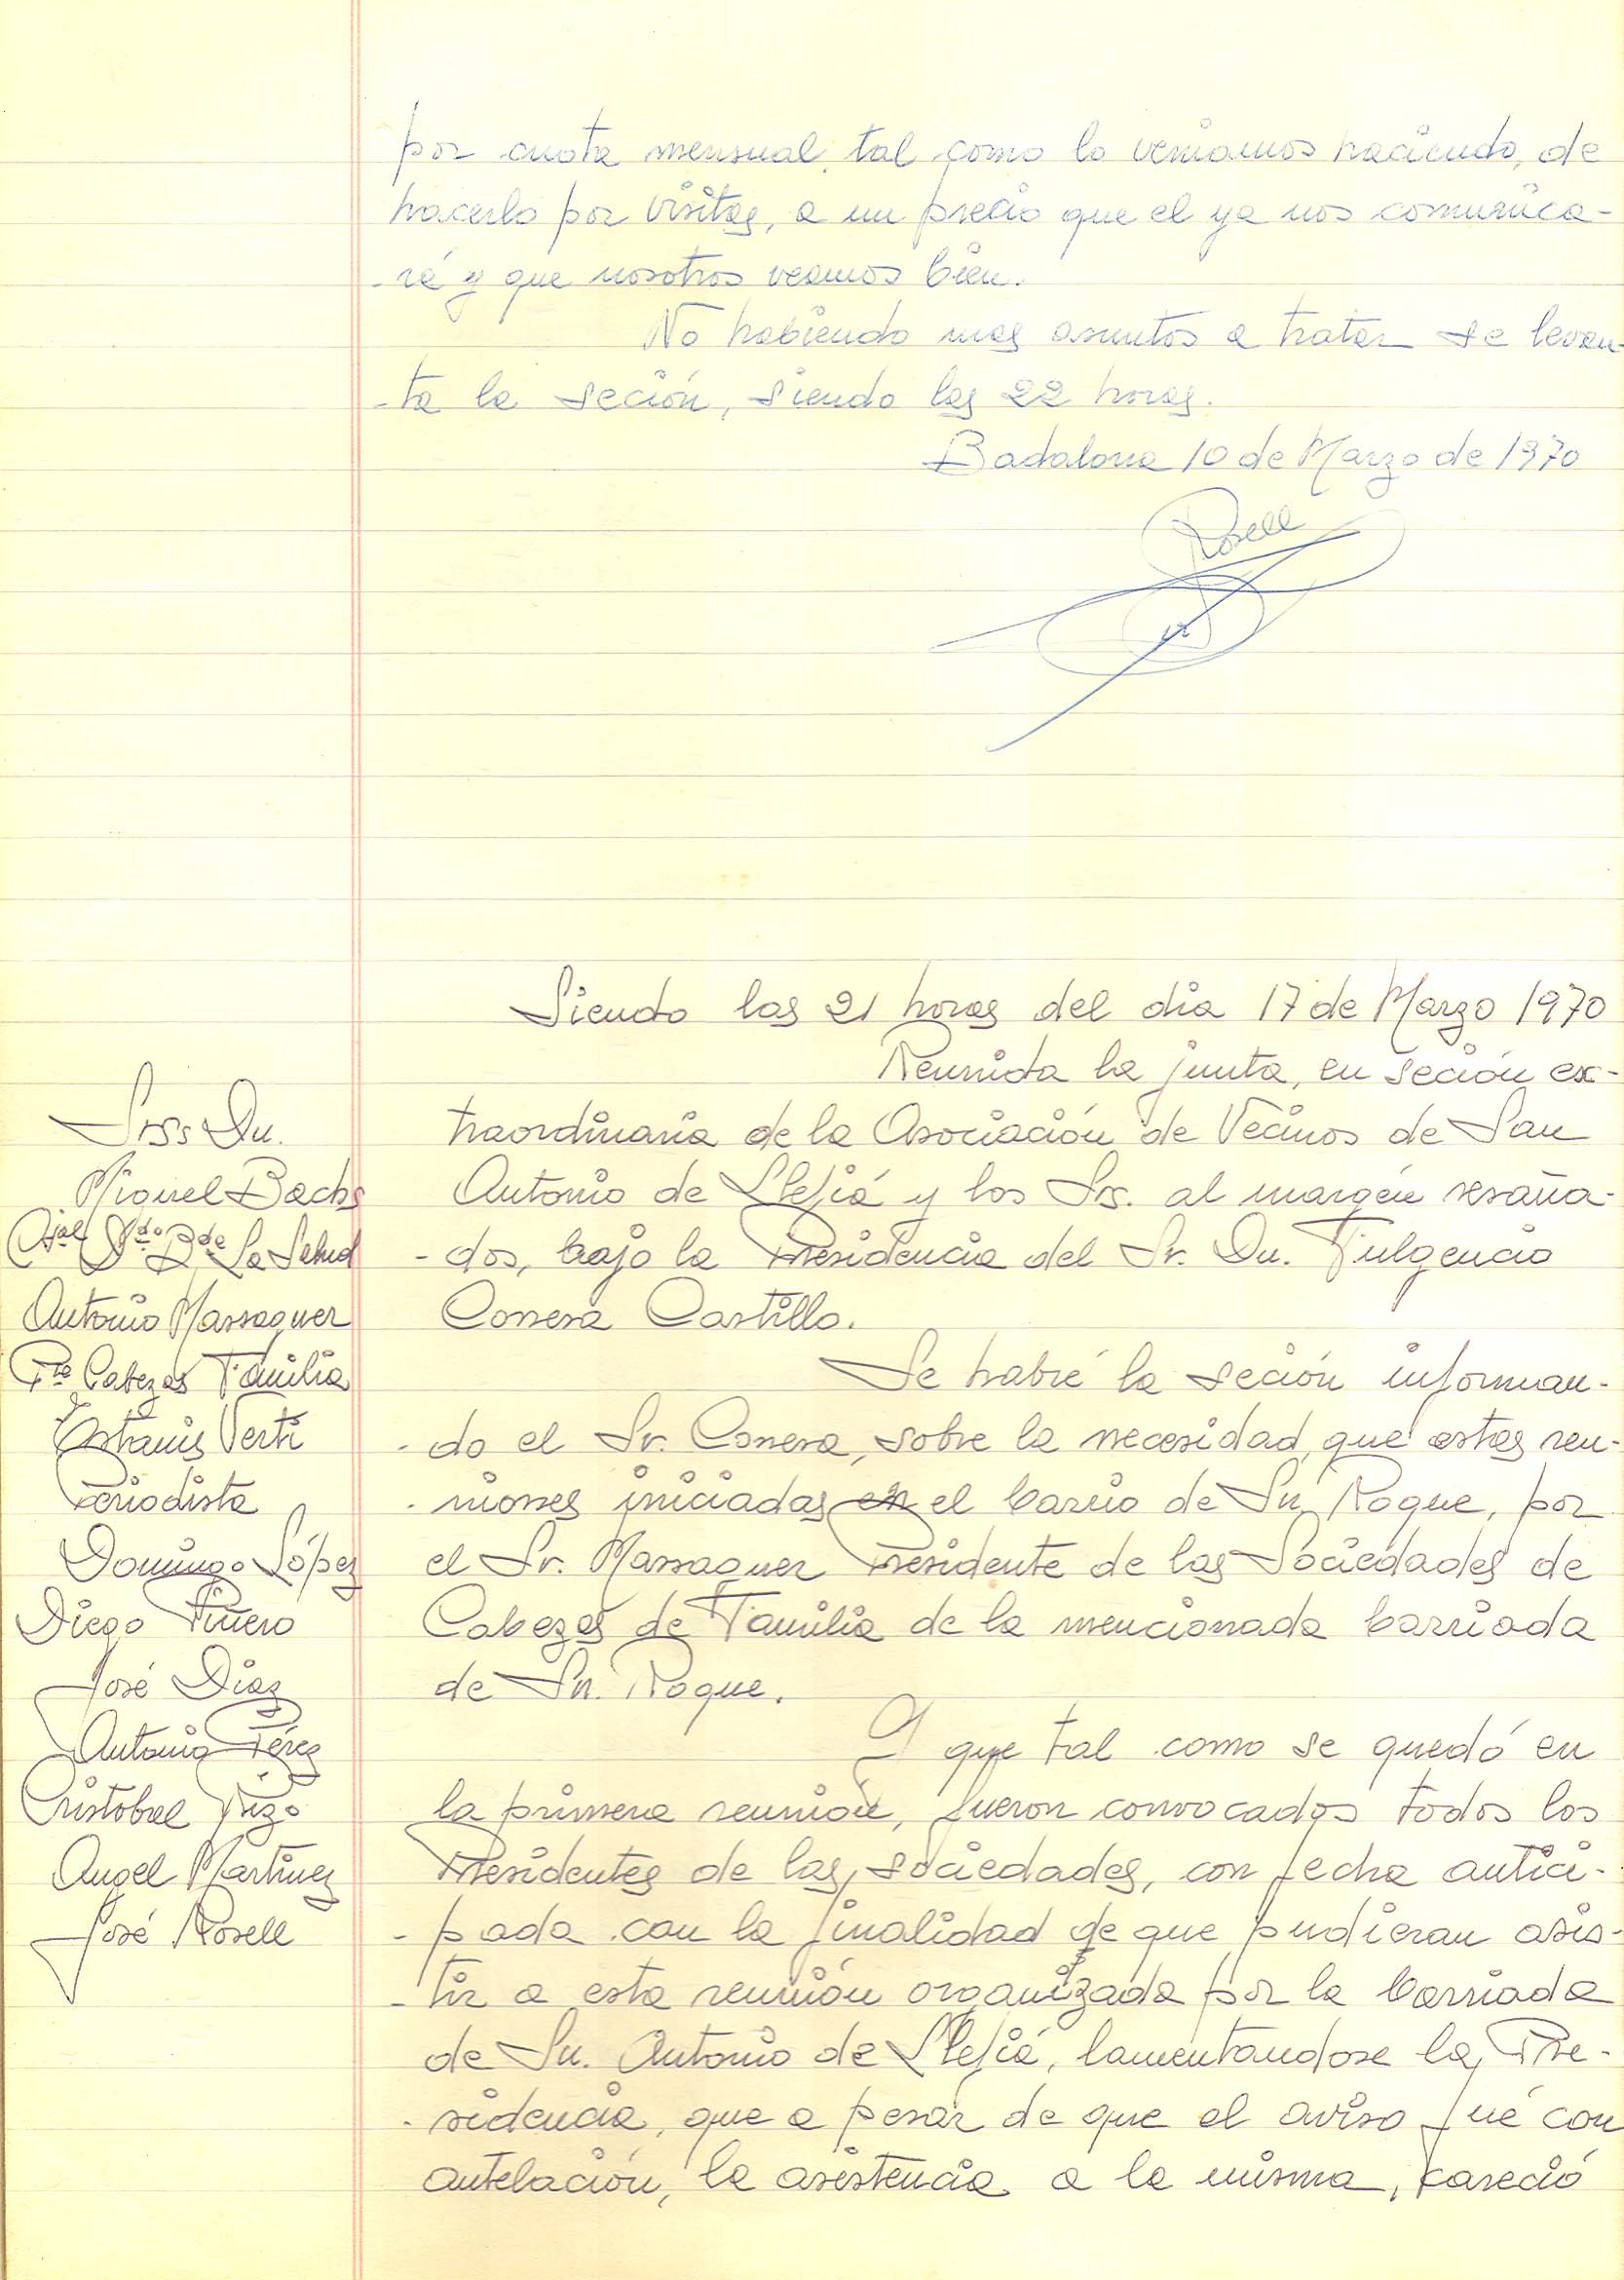 por cuota mensual, tal como lo veniamos haciendo, de
hacerlo por visitas, a un precio que el ya nos comunica-
-rá y que nosotros veamos bien.
No habiendo mas asuntos a tratar se levan-
-ta la seción, siendo las 22 horas.
Badalona 10 de Marzo de 1970
Rosell
Siendo las 21 horas del dia 17 de Marzo 1970
Reunida la junta, en seción ex-
traordinaria de la Asociación de Vecinos de San
Antonio de Llefiá y los Srs. al margen resaña-
-dos, bajo la Presidencia del Sr. Dn. Fulgencio
Conesa Castillo.
Se habré la seción informan-
-do el Sr. Conesa, sobre la necesidad, que estas reu-
-niones iniciadas en el barrio de Sn. Roque, por
el Sr. Massaguer Presidente de las Sociedades de
Cabezas de Familia de la mencionada barriada
de Sn. Roque.
Y que tal como se quedó en
la primera reunión, fueron convocados todos los
Presidentes de las sociedades, con fecha antici-
-pada con la finalidad de que pudieran asis-
-tir a esta reunión organizada por la barriada
de Sn. Antonio de Llefiá, lamentandose la Pre-
-sidencia, que a pesar de que el aviso fué con
antelación, la asistencia a la misma, careció
Srss Dn.
Miquel Bachs
La Salud
Antonio Massaguer
Pte Cabezas Familia
Estanis Verti
Periodista
Domingo López
Diego Piñero
José Diaz
Antonio Pérez
Cristobal
Angel Martinez
José Rosell